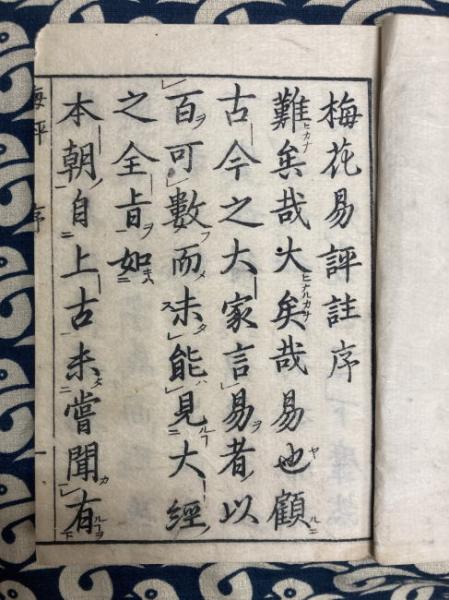 梅花易評註序
難矣哉大矣哉易也顧
古今之大家言易者以
百可數而未能見大經
之全旨如
本朝自上古未嘗聞有
梅評 序 一